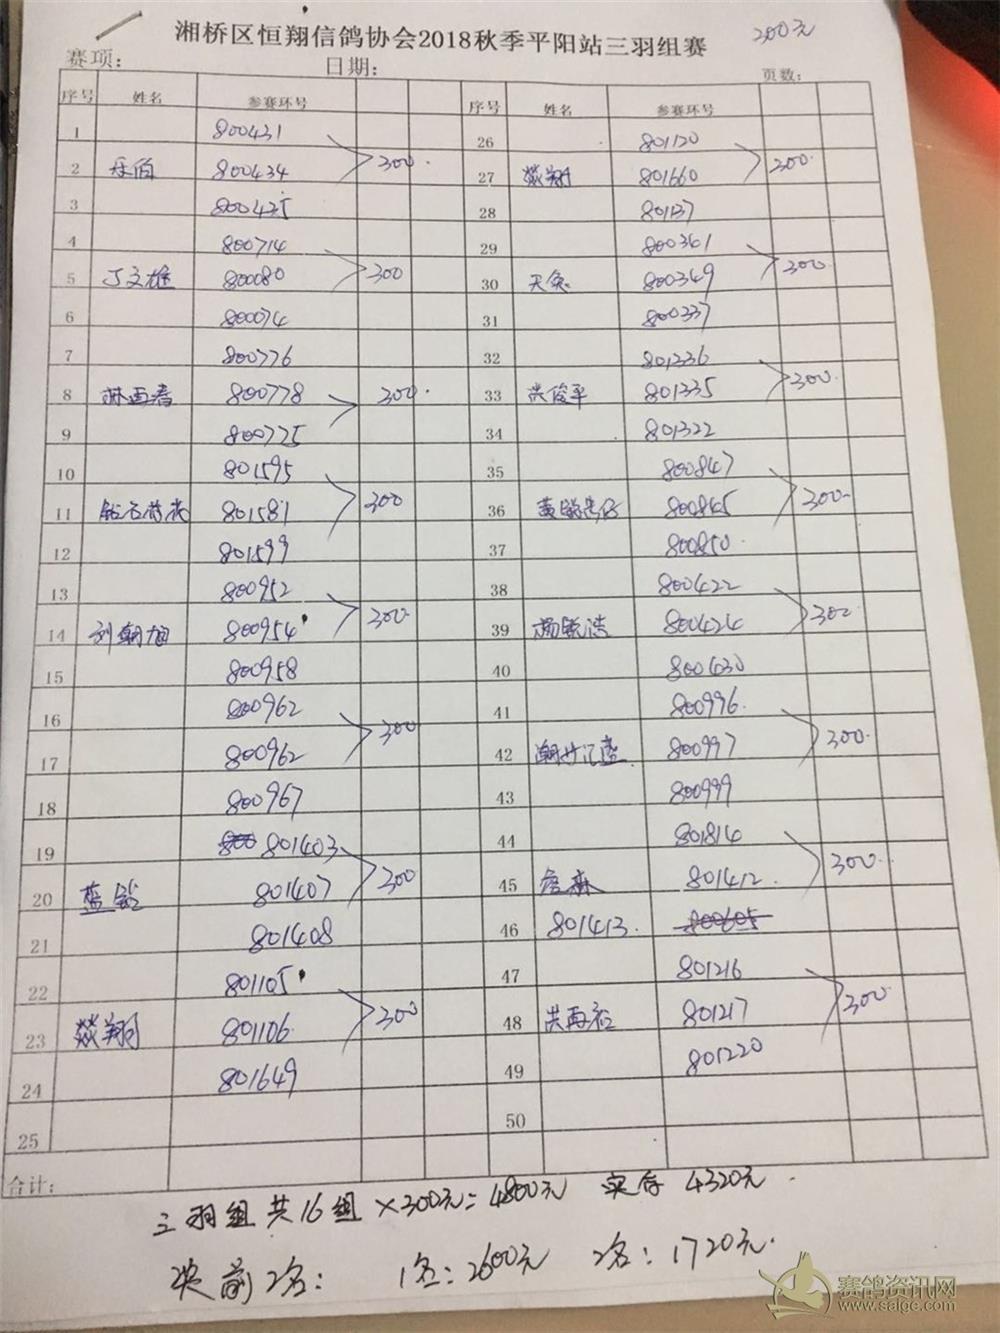 湘桥区恒翔信鸽协会2018秋季平阳站三羽组赛
赛项：
日期：
页数：
序号 姓名 参赛环号 序号 姓名 参赛环号
1 800431 26 801120
2 800434 300 27 燚翔 801660 300
3 800435 28 80137
4 800714 29 800361
5 丁文雄 80080 300 30 800349 300
6 80074 31 800337
7 800776 32 801336
8 800778 300 33 洪俊平 801335 300
9 800775 34 801322
10 801595 35 800847
11 801581 300 36 800845 300
12 801599 37 800850
13 800952 38 800422
14 刘朝旭 800954 300 39 杨锐浩 800424 300
15 800958 40 800430
16 800962 41 800996
17 800962 300 42 800997 300
18 800967 43 800999
19 800 801403 44 801814
20 801407 300 45 詹森 801412 300
21 801408 46 801413 800605
22 801105 47 801216
23 燚翔 801106 300 48 801217 300
24 801649 49 801220
25 50
合计：
三羽组共16组×300元=4800元 实存4320元
奖前2名： 1名：2600元 2名：1720元
赛鸽资讯网
www.saige.com